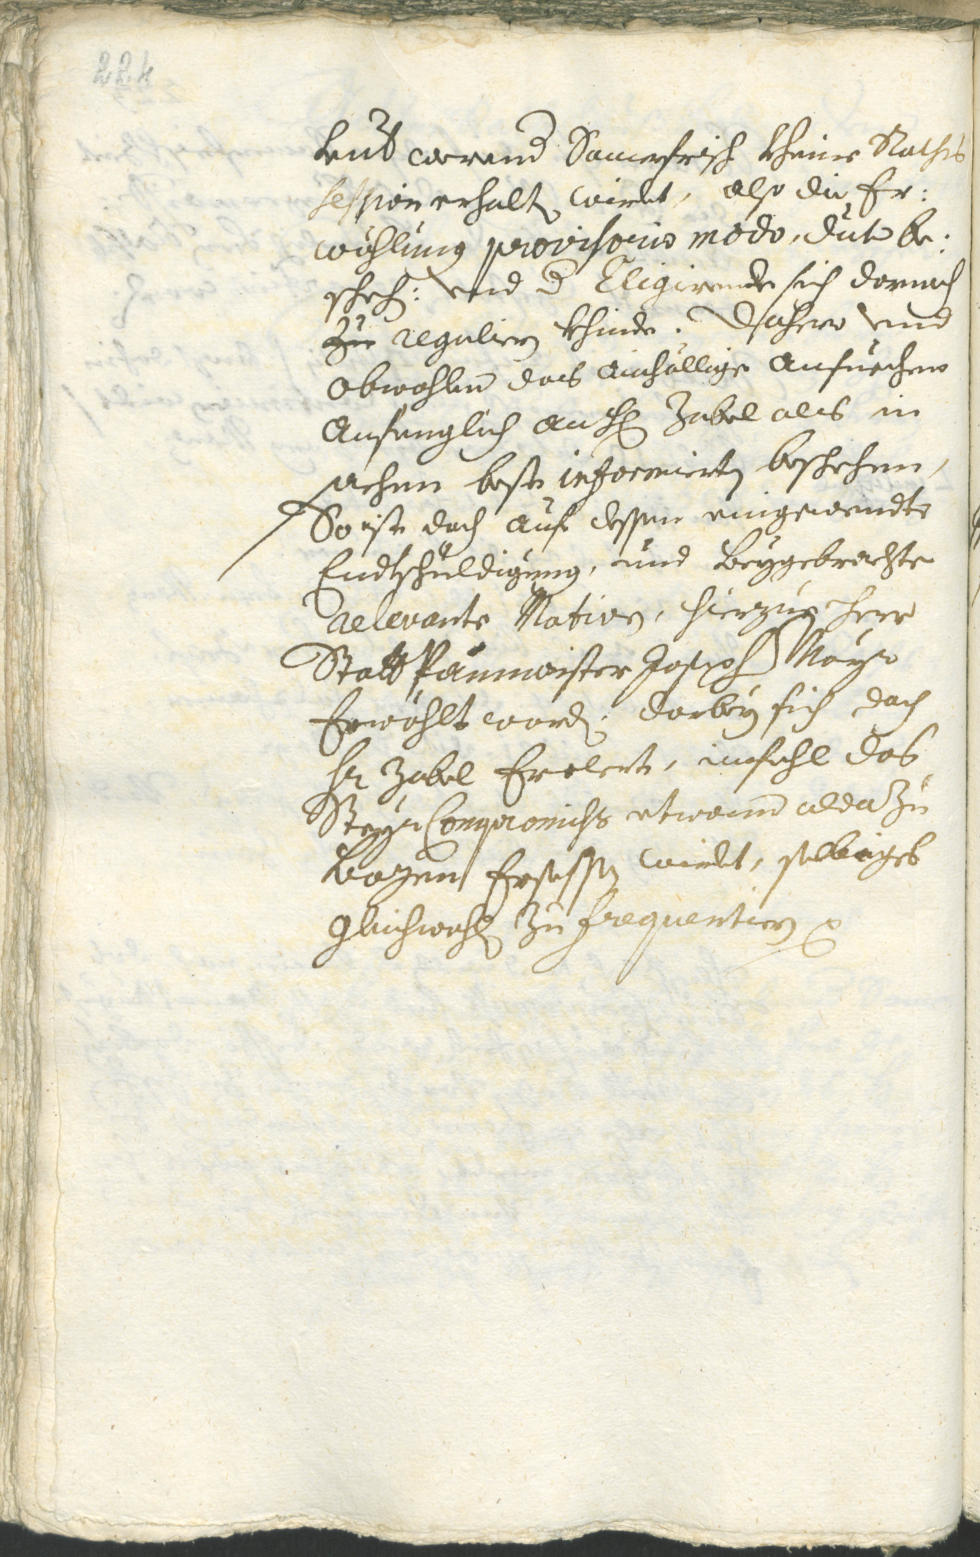 224
weil werend Sumerfrisch kheine Raths
session erhalt wirdet, also die Er:
wöhlung provisorio modo, dato be:
scheh: und d Eligirende sich darnach
zu regulirn khinde. Dahero und
obwohlen das ainhöllige Ansuechen
Anfenglich an H Zobel als in
sachen best informierten beschehen,
So ist doch auf dessen eingewendte
Endtschuldigung, und beygebrachte
relevante Motiven, hierzue Herr
Statt Paumaister Joseph Mayr
Erwöhlt word. darbey sich doch
Hr Zobel Erclert, imfahl das
Steyr Compromiss etwann alda zu
Bozen Ersessen wirdet, selbiges
gleichwohl zu frequentiern